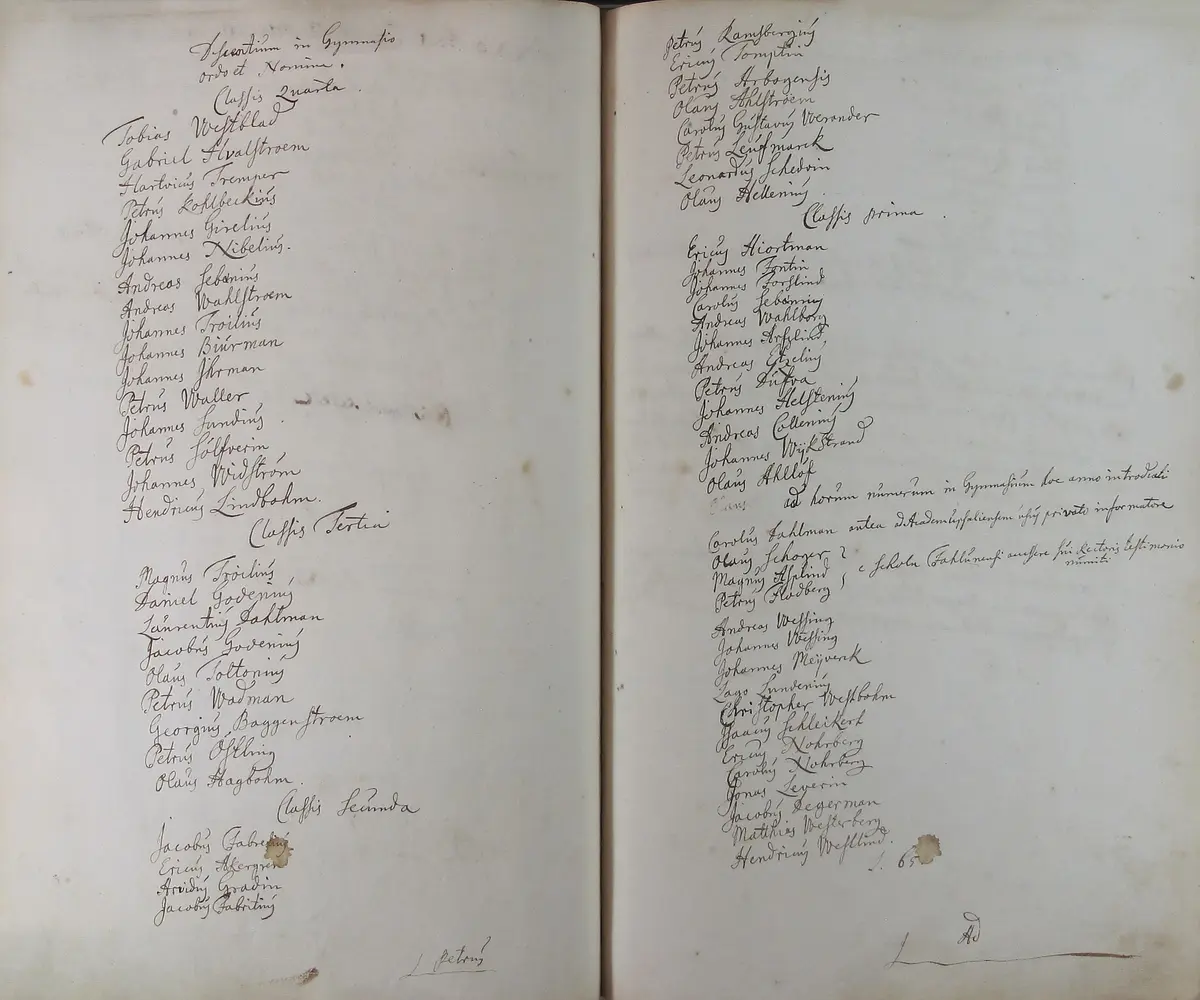 Discentium in Gymnasio
ordo et Nomina.
Classis Quarta.
Tobias Westblad
Gabriel Hvalstroem
Hartvicus Tremper
Petrus Kohlbeckius
Johannes Girelius
Johannes Nibelius.
Andreas Sebenius
Andreas Wahlstroem
Johannes Troilius
Johannes Biurman
Johannes Jhrman
Petrus Waller
Johannes Sundius
Petrus Sölfverin
Johannes Widström
Hendricus Lindbohm.
Classis Tertia
Magnus Troilius
Daniel Godenius
Laurentius Dahlman
Jacobus Godenius
Olaus Toltonius
Petrus Wadman
Georgius Baggenstroem
Petrus Östling
Olaus Hagbohm.
Classis Secunda
Jacobus
Ericus Akergren
Arvidus Gradin
Jacobus Fabritius
Petrus
Petrus Ramsbergius
Ericus Tomptin
Petrus Arbogensis
Olaus Ahlstroem
Carolus Gustavus Weronder
Petrus Leufmarck
Leonardus Schedvin
Olaus Hellenius.
Classis prima.
Ericus Hiortman
Johannes Fontin
Johannes Forslind
Carolus Sebenius
Andreas Wahlborg
Johannes
Andreas
Petrus Dufva
Johannes Helstenius
Andreas Collenius
Johannes Wijkstrand
Olaus Ahllöf
ad horum numerum in Gymnasium hoc anno introducti
Carolus Dahlman antea ad Academ: Upsaliensem usus privato informatore
Olaus Schoger
Magnus Asplind
Petrus Flodberg
e Schola Fahlunensi sui Rectoris testimonio
muniti
Andreas Wessing
Johannes Wessing
Johannes Meijverck
Lago Lundenius
Christopher Westbohm
Isaacus Schleikert
Ericus Nohrberg
Carolus Nohrberg
Jonas Severin
Jacobus Degerman
Matthias Westerberg
Hendricus Westlind.
65
Ad